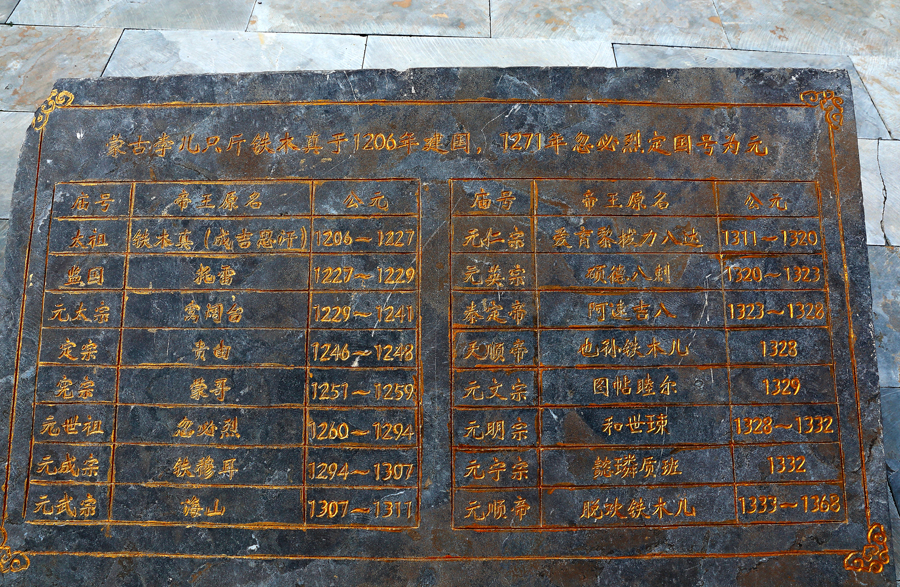 蒙古孛儿只斤铁木真于1206年建国，1271年忽必烈定国号为元
庙号 帝王原名 公元
太祖 铁木真（成吉思汗） 1206～1227
监国 拖雷 1227～1229
元太宗 窝阔台 1229～1241
定宗 贵由 1246～1248
宪宗 蒙哥 1251～1259
元世祖 忽必烈 1260～1294
元成宗 铁穆耳 1294～1307
元武宗 海山 1307～1311
庙号 帝王原名 公元
元仁宗 爱育黎拔力八达 1311～1320
元英宗 硕德八剌 1320～1323
泰定帝 阿速吉八 1323～1328
天顺帝 也孙铁木儿 1328
元文宗 图帖睦尔 1329
元明宗 和世㻋 1328～1332
元宁宗 懿璘质班 1332
元顺帝 脱欢铁木儿 1333～1368